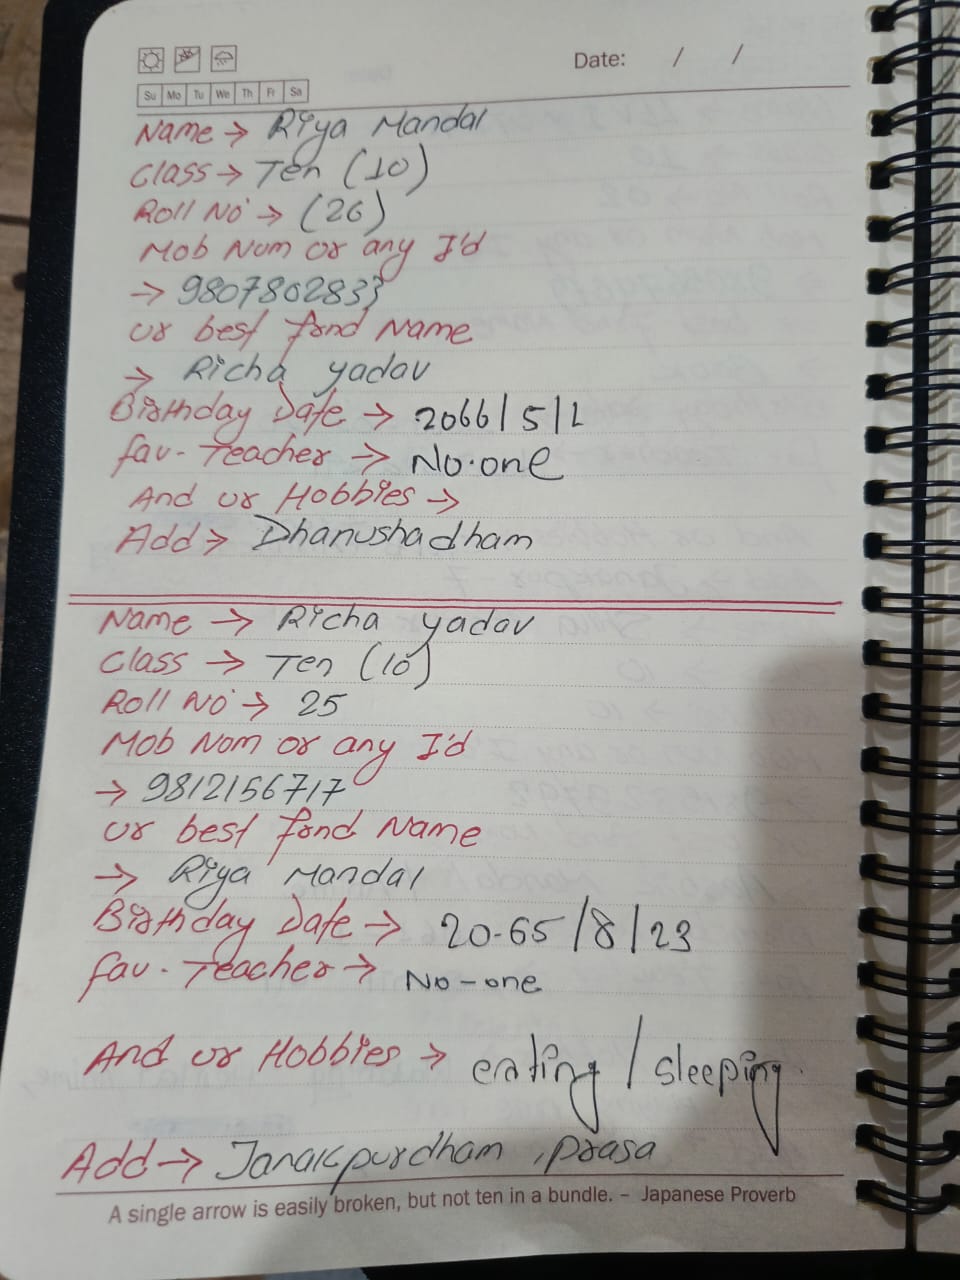 Date: / /
Su Mo Tu We Th Fr Sa
Name → Riya Mandal
Class → Ten (10)
Roll No → (26)
Mob Num or any I'd
→ 9807802833
Ur best frnd Name
→ Richa yadav
Birthday Date → 2066/5/2
fav- Teacher → No.one
And ur Hobbies →
Add → Dhanushadham
Name → Richa yadav
Class → Ten (10)
Roll No → 25
Mob Nom or any I'd
→ 9812156717
Ur best frnd Name
→ Riya Mandal
Birthday Date → 20-65/8/23
fav-Teacher → No-one
And ur Hobbies → eating / sleeping.
Add → Janakpurdham, prasa
A single arrow is easily broken, but not ten in a bundle. – Japanese Proverb